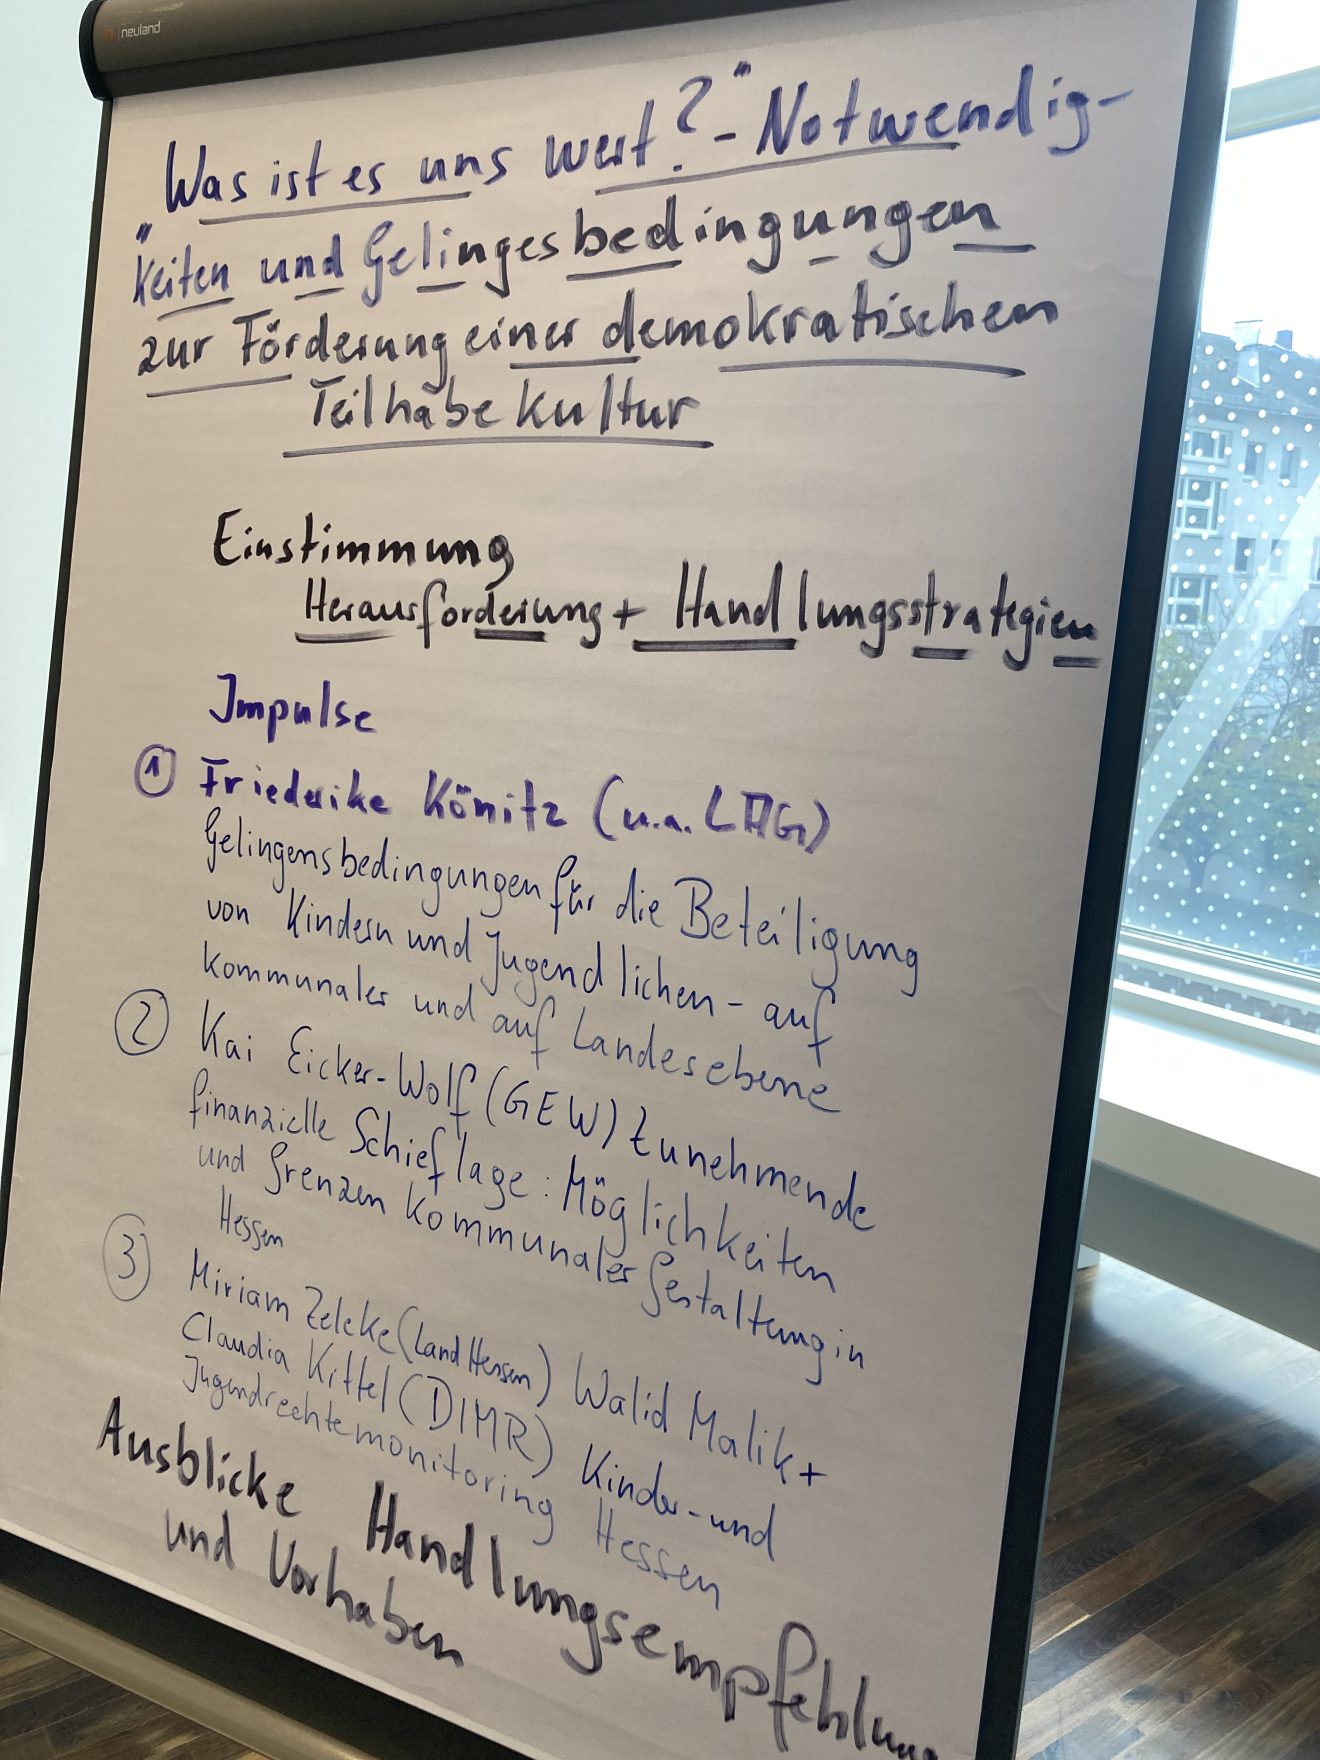 neuland
„Was ist es uns wert?“ - Notwendig-
keiten und Gelingesbedingungen
zur Förderung einer demokratischen
Teilhabekultur
Einstimmung
Herausforderung + Handlungsstrategien
Impulse
① Friederike Könitz (u.a. LAG)
Gelingensbedingungen für die Beteiligung
von Kindern und Jugendlichen - auf
kommunaler und auf Landesebene
② Kai Eicker-Wolf (GEW) Zunehmende
finanzielle Schieflage: Möglichkeiten
und Grenzen kommunaler Gestaltung in
Hessen
③ Miriam Zeleke (Land Hessen) Walid Malik +
Claudia Kittel (DIMR) Kinder- und
Jugendrechtemonitoring Hessen
Ausblicke Handlungsempfehlung
und Vorhaben